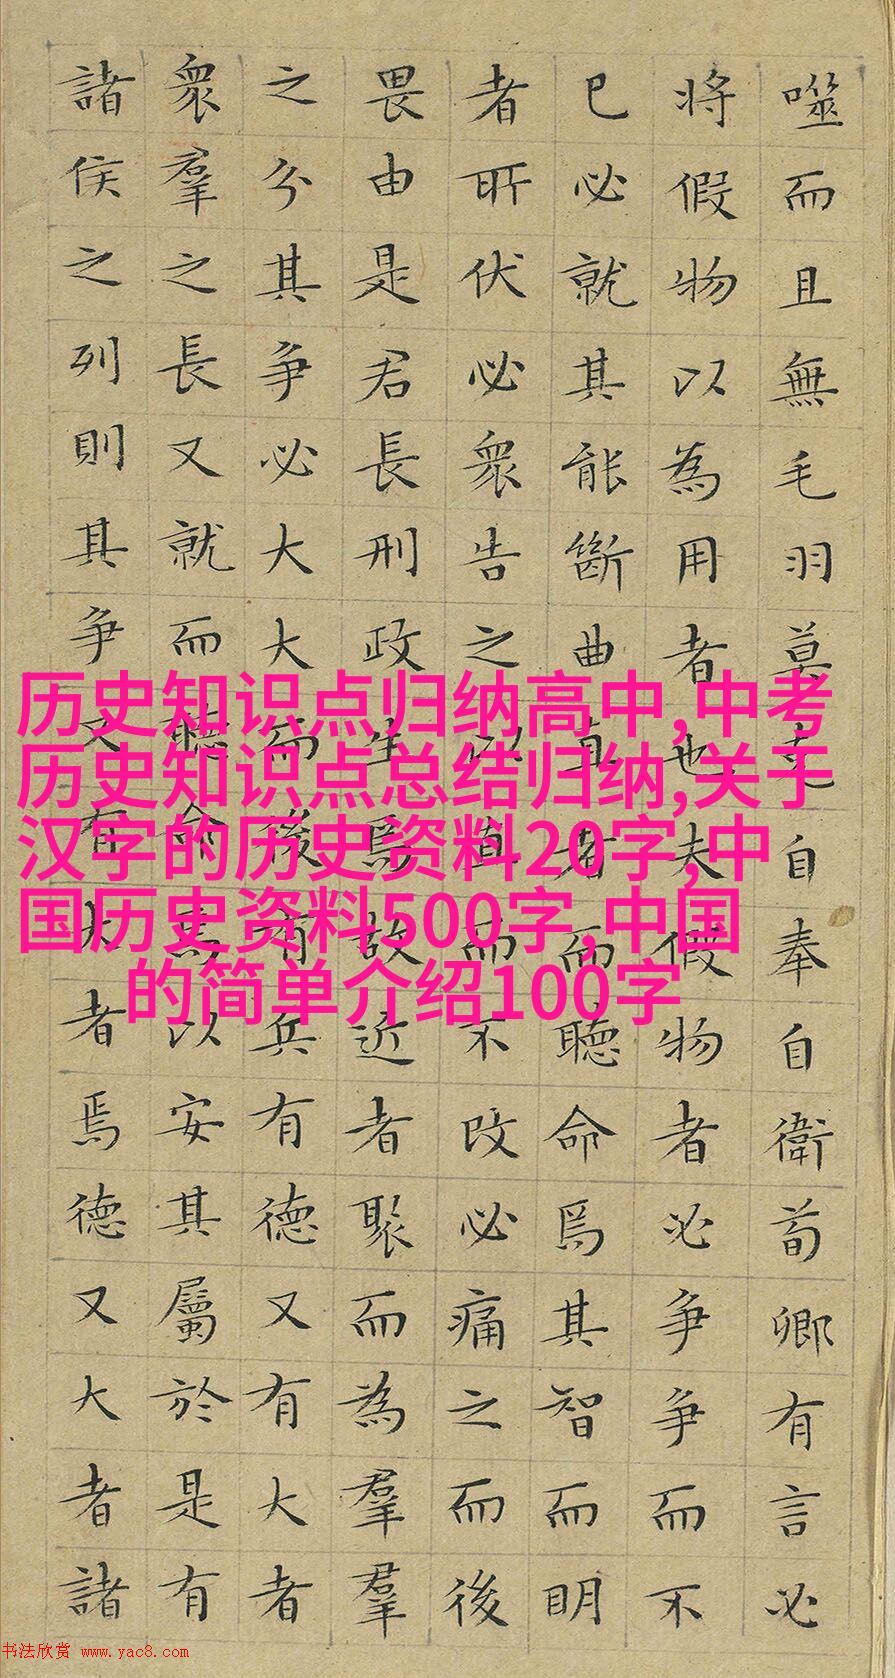 噬而且無毛羽莫克自奉自衛荀卿有言必
将假物以為用者也夫假物者必爭爭而不
已必就其能斷曲直者而聽命焉其智而明
者所伏必衆告之以直而不改必痛之而後
畏由是君長刑政生焉故近者聚而為羣羣
之分其爭必大大而後有兵有德又有大者
衆羣之長又就而聽命焉以安其屬於是有
諸侯之列則其爭又有大者焉德又大者諸
历史知识点归纳高中,中考
历史知识点总结归纳,关于
汉字的历史资料20字,中
国历史资料500字,中国
的简单介绍100字
书法欣赏 www.yac8.com